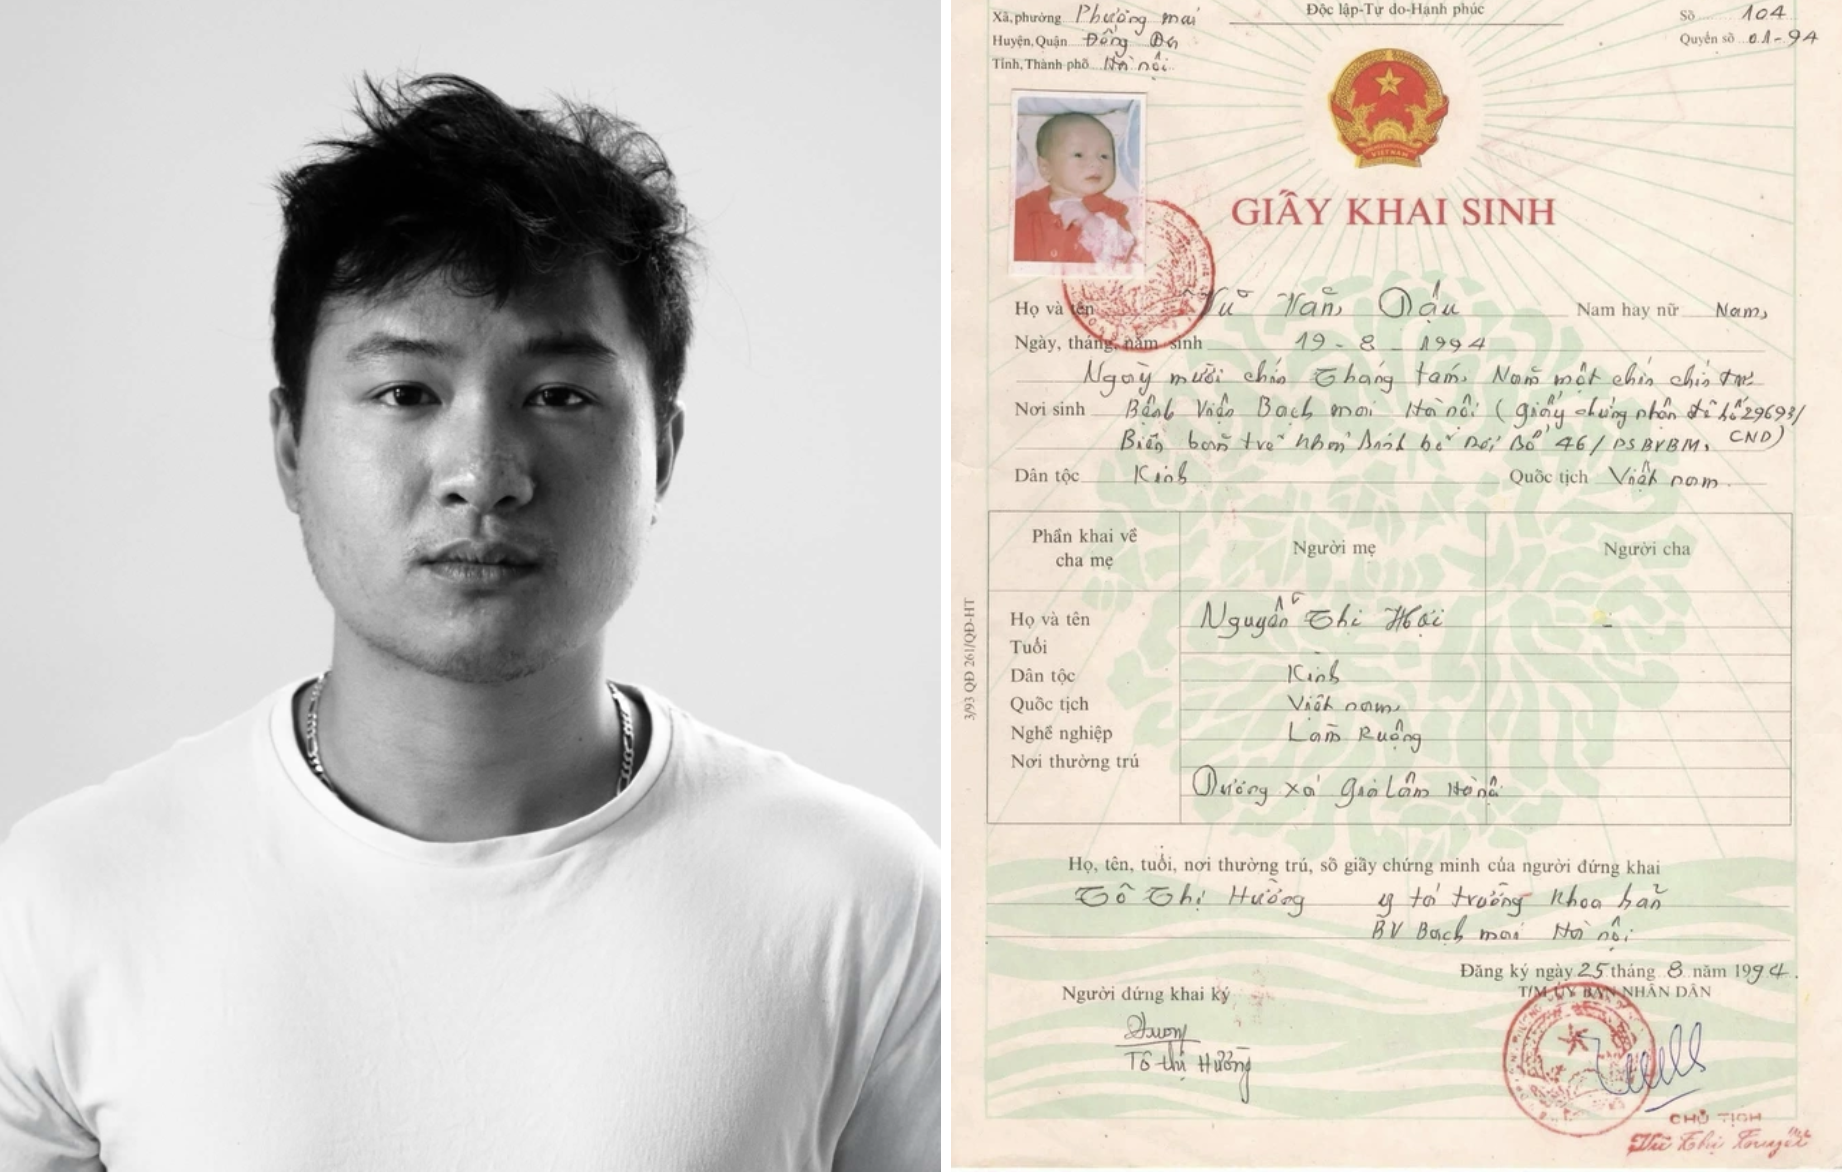 Độc lập-Tự do-Hạnh phúc
Xã, phường Phương mai
Huyện, Quận Đống Đa
Tỉnh, Thành phố Hà nội
Số 104
Quyển số 01-94
VIỆT NAM
GIẤY KHAI SINH
Họ và tên Vũ Văn Dậu Nam hay nữ Nam
Ngày, tháng, năm sinh 19-8-1994
Ngày mười chín Tháng tám Năm một chín chín tư
Nơi sinh Bệnh Viện Bạch mai Hà nội (giấy chứng nhận 29693/
Biên bản trẻ bỏ 46/ CND)
Dân tộc Kinh Quốc tịch Việt nam
Phần khai về cha mẹ
Người mẹ
Người cha
Họ và tên Nguyễn Thị -
Tuổi
Dân tộc Kinh
Quốc tịch Việt nam
Nghề nghiệp Làm Ruộng
Nơi thường trú
Dương xá Gia Lâm Hà nội
3/93 QĐ 261/QĐ-HT
Họ, tên, tuổi, nơi thường trú, số giấy chứng minh của người đứng khai
Tô Thị Hường y tá trưởng Khoa
BV Bạch mai Hà nội
Đăng ký ngày 25 tháng 8 năm 1994
T/M ỦY BAN NHÂN DÂN
Người đứng khai ký
Tô thị Hường
CHỦ TỊCH
Vũ Thị